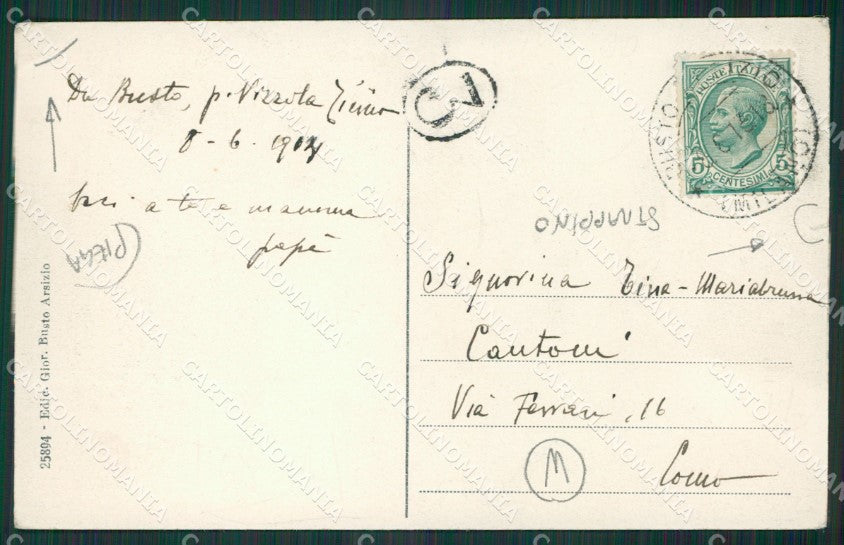 Da Busto, p. Vizzola Ticino
8 - 6. 1914
baci a te e mamma
papà
PIEGA
25894 - Ediz. Gior. Busto Arsizio
C7
POSTE ITALIANE
5 CENTESIMI 5
BUSTO ARSIZIO
(MILANO)
STRAPPINO
Signorina Tina - Mariabruna
Cantoni
Via Ferrari, 16
Como
M
CARTOLINOMANIA